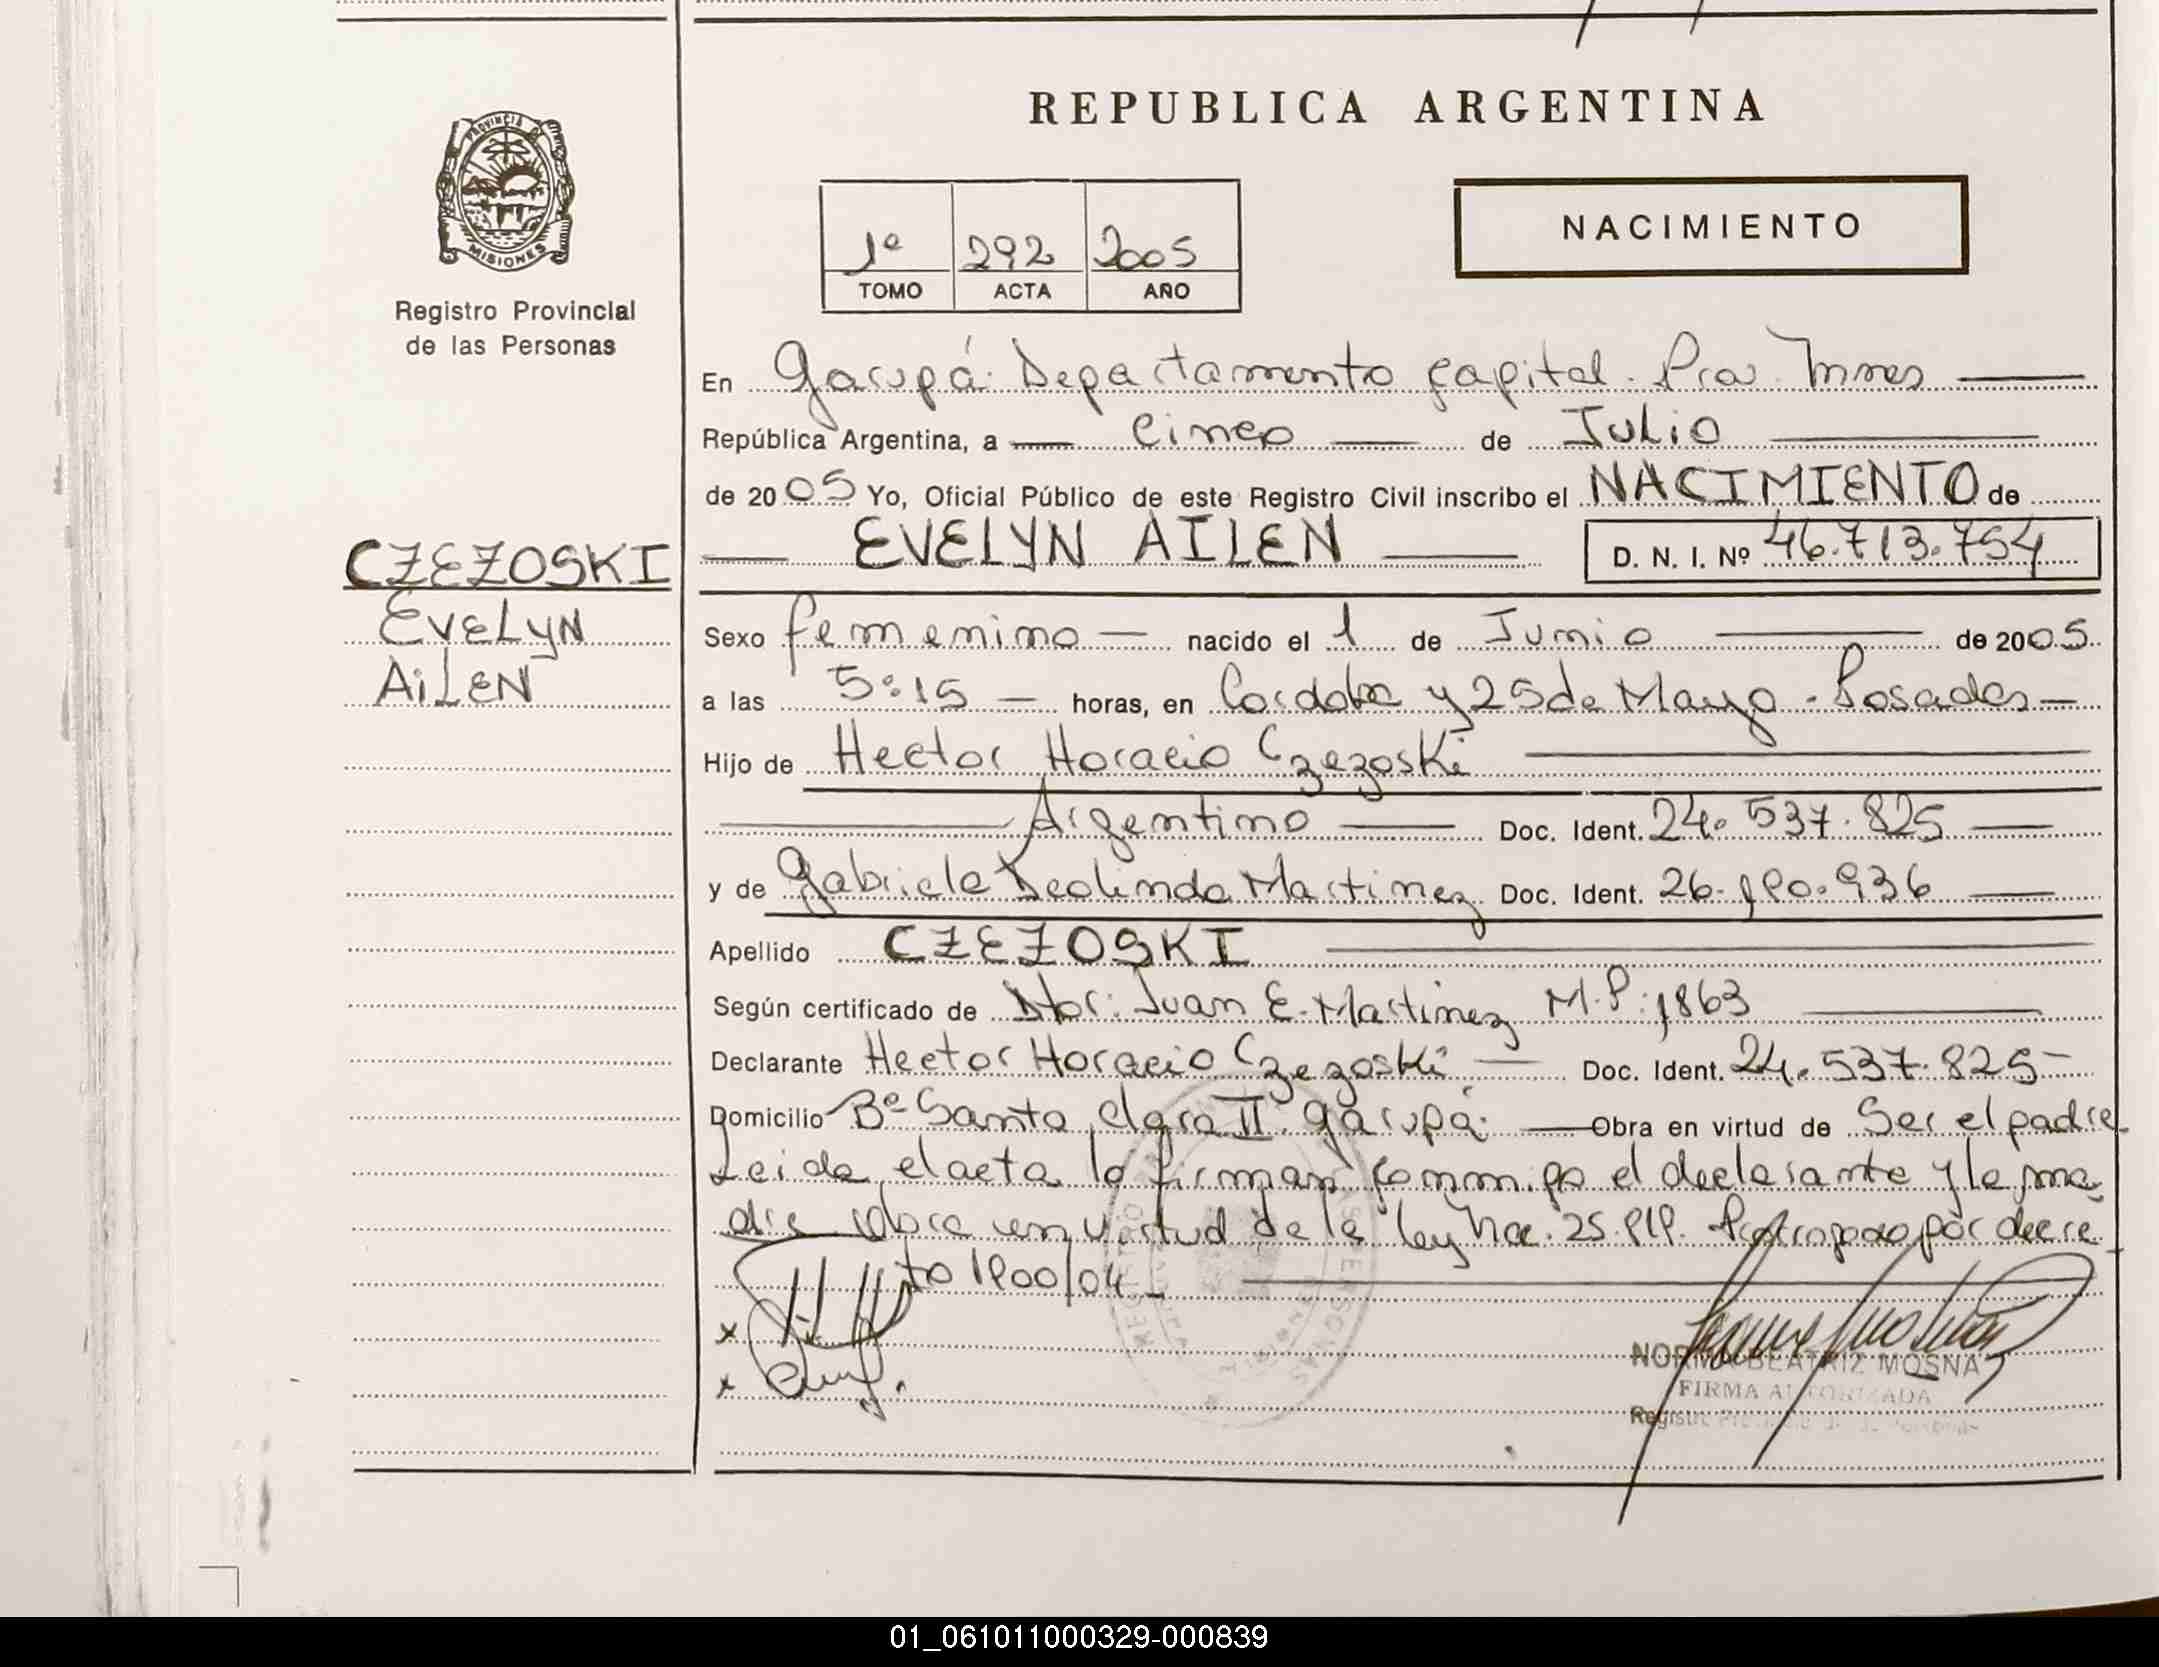 REPUBLICA ARGENTINA
PROVINCIA DE
MISIONES
Registro Provincial
de las Personas
NACIMIENTO
1º 292 2005
TOMO ACTA AÑO
En Garupá. Departamento Capital. Prov. Mnes
República Argentina, a cinco de Julio
de 2005 Yo, Oficial Público de este Registro Civil inscribo el NACIMIENTO de
EVELYN AILEN D. N. I. Nº 46.713.754
CZEZOSKI
EVELYN
AILEN
Sexo femenino nacido el 1 de Junio de 2005
a las 5:15 horas, en Cordoba y 25 de Mayo - Posadas
Hijo de Hector Horacio Czezoski
Argentino Doc. Ident. 24.537.825
y de Gabriela Deolinda Martinez Doc. Ident. 26. .936
Apellido CZEZOSKI
Según certificado de Dtor: Juan E. Martinez M.P: 1863
Declarante Hector Horacio Czezoski Doc. Ident. 24.537.825
Domicilio Bº Santa Clara II. Garupá. Obra en virtud de Ser el padre
Leida el acta la firman conmigo el declarante y la ma
dre obra en virtud de la ley Nac. 25.819. Prorrogado por decre
to 1900/04
x
x
NORMA BEATRIZ MOSNA
FIRMA AUTORIZADA
Registro Provincial de las Personas
01_061011000329-000839